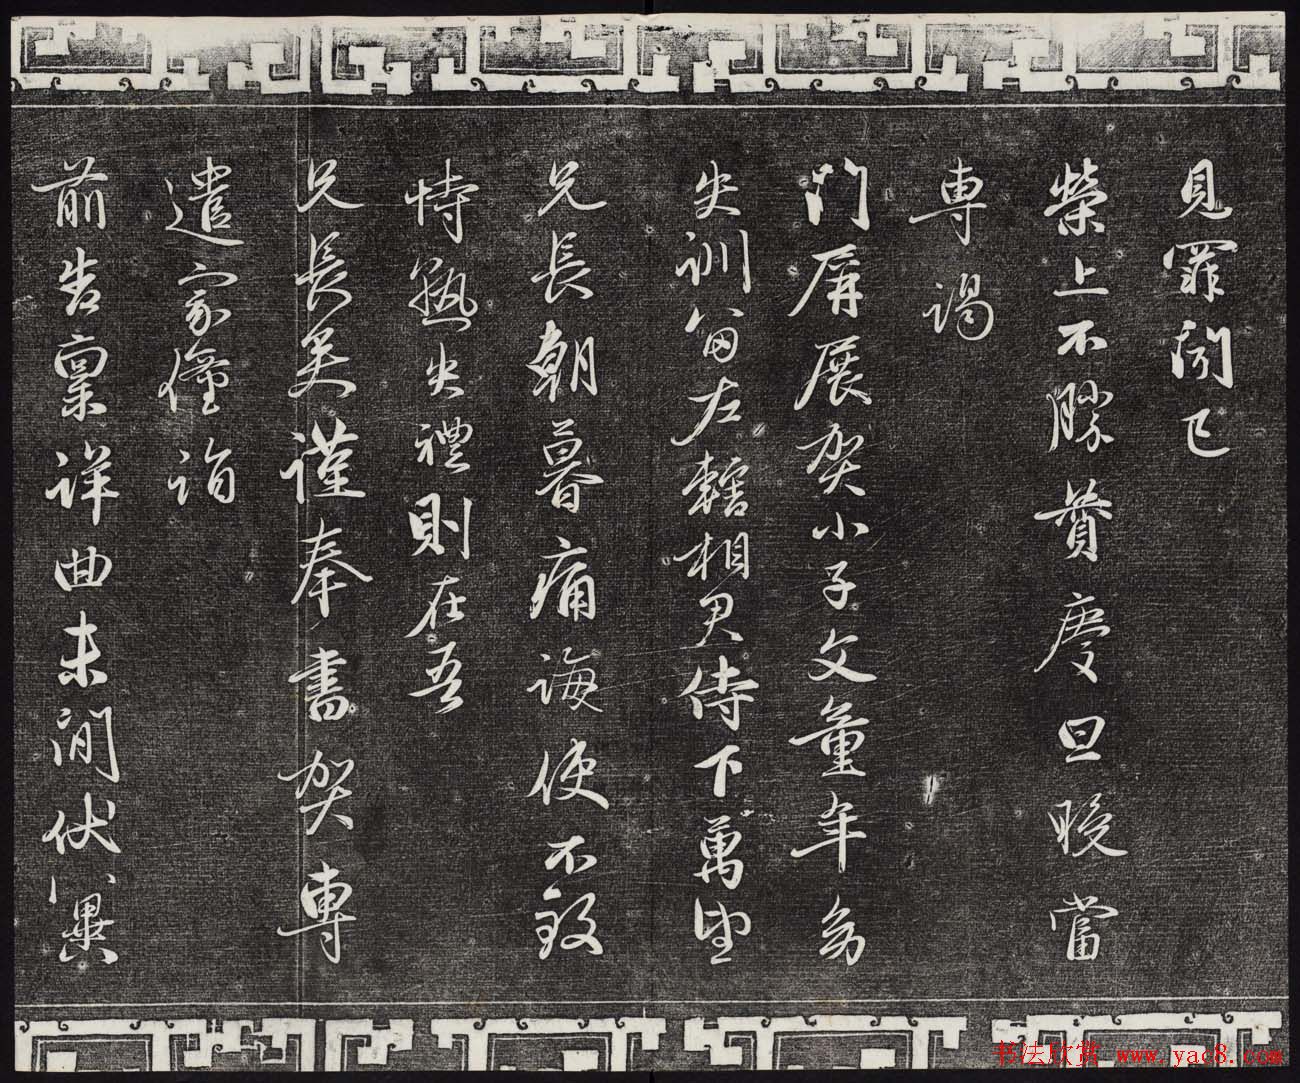 見罪聞已
榮上不勝賛慶旦晚當
專謁
門屏展賀小子文童年多
失訓習左轄相君侍下萬望
兄長朝暮痛誨使不致
恃熟失禮則在吾
兄長美謹奉書賀專
遣家僮詣
前告稟詳曲未間伏冀
书法欣赏 www.yac8.com